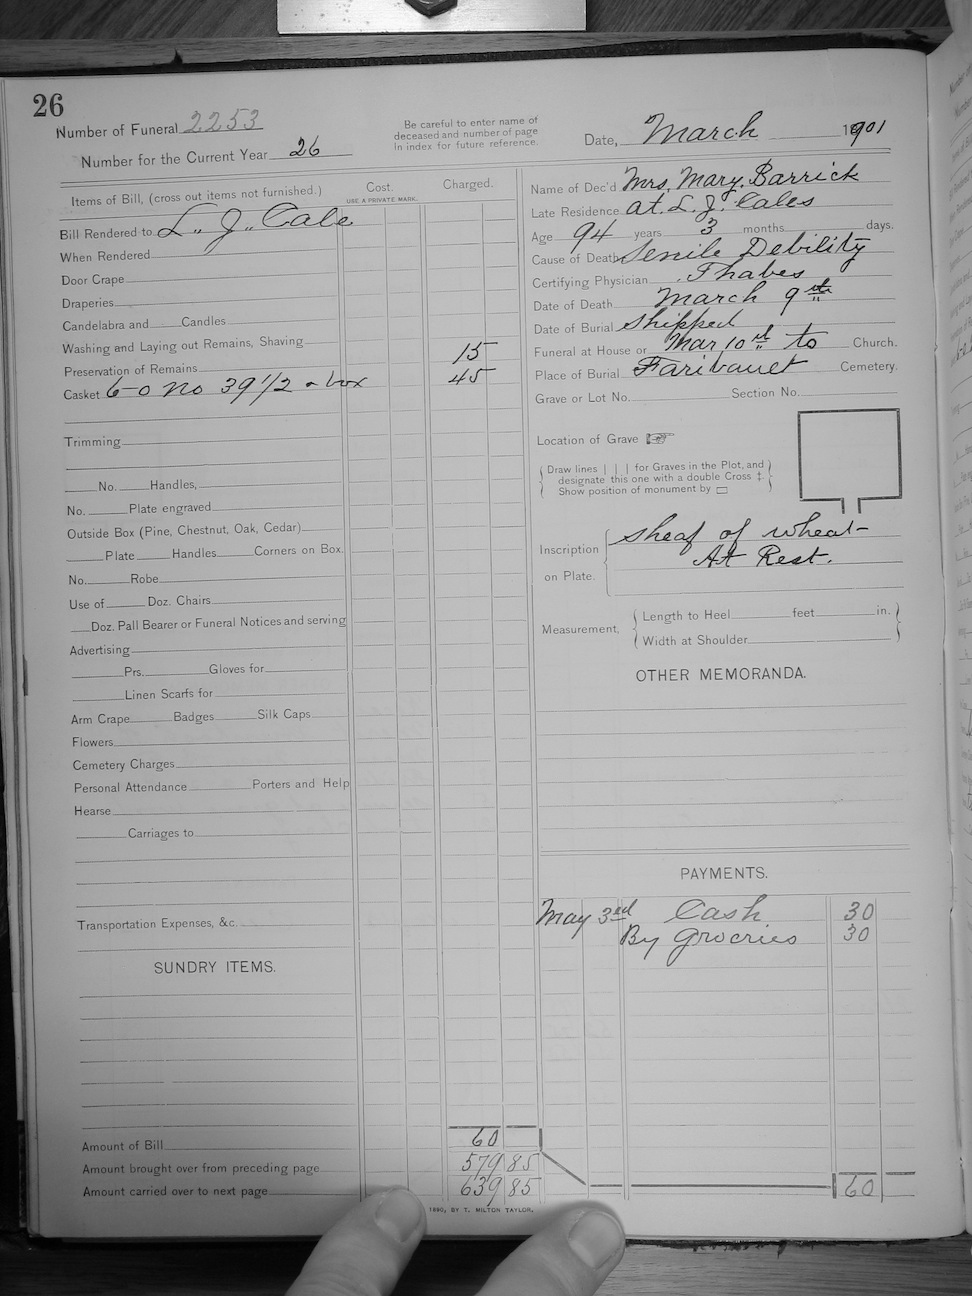 26
Number of Funeral 2253
Number for the Current Year 26
Be careful to enter name of
deceased and number of page
in index for future reference.
Date, March 1901
Items of Bill, (cross out items not furnished.) Cost. Charged.
USE A PRIVATE MARK.
Bill Rendered to L. J. Cale
When Rendered
Door Crape
Draperies
Candelabra and Candles
Washing and Laying out Remains, Shaving
Preservation of Remains 15
Casket 6-0 No 39 1/2 & box 45
Trimming
No. Handles,
No. Plate engraved
Outside Box (Pine, Chestnut, Oak, Cedar)
Plate Handles Corners on Box.
No. Robe
Use of Doz. Chairs
Doz. Pall Bearer or Funeral Notices and serving
Advertising
Prs. Gloves for
Linen Scarfs for
Arm Crape Badges Silk Caps
Flowers
Cemetery Charges
Personal Attendance Porters and Help
Hearse
Carriages to
Transportation Expenses, &c.
SUNDRY ITEMS.
Amount of Bill 60
Amount brought over from preceding page 579 85
Amount carried over to next page 639 85
1890, BY T. MILTON TAYLOR.
Name of Dec'd Mrs. Mary. Barrick
Late Residence at. L. J. Cales
Age 94 years 3 months days.
Cause of Death Senile Debility
Certifying Physician Thabes
Date of Death March 9th
Date of Burial Shipped
Funeral at House or Mar 10th to Church.
Place of Burial Faribault Cemetery.
Grave or Lot No. Section No.
Location of Grave
Draw lines | | | for Graves in the Plot, and
designate this one with a double Cross ‡.
Show position of monument by ▭
Inscription on Plate. Sheaf of wheat-
At Rest.
Measurement, Length to Heel feet in.
Width at Shoulder
OTHER MEMORANDA.
PAYMENTS.
May 3rd Cash 30
By Groceries 30
60